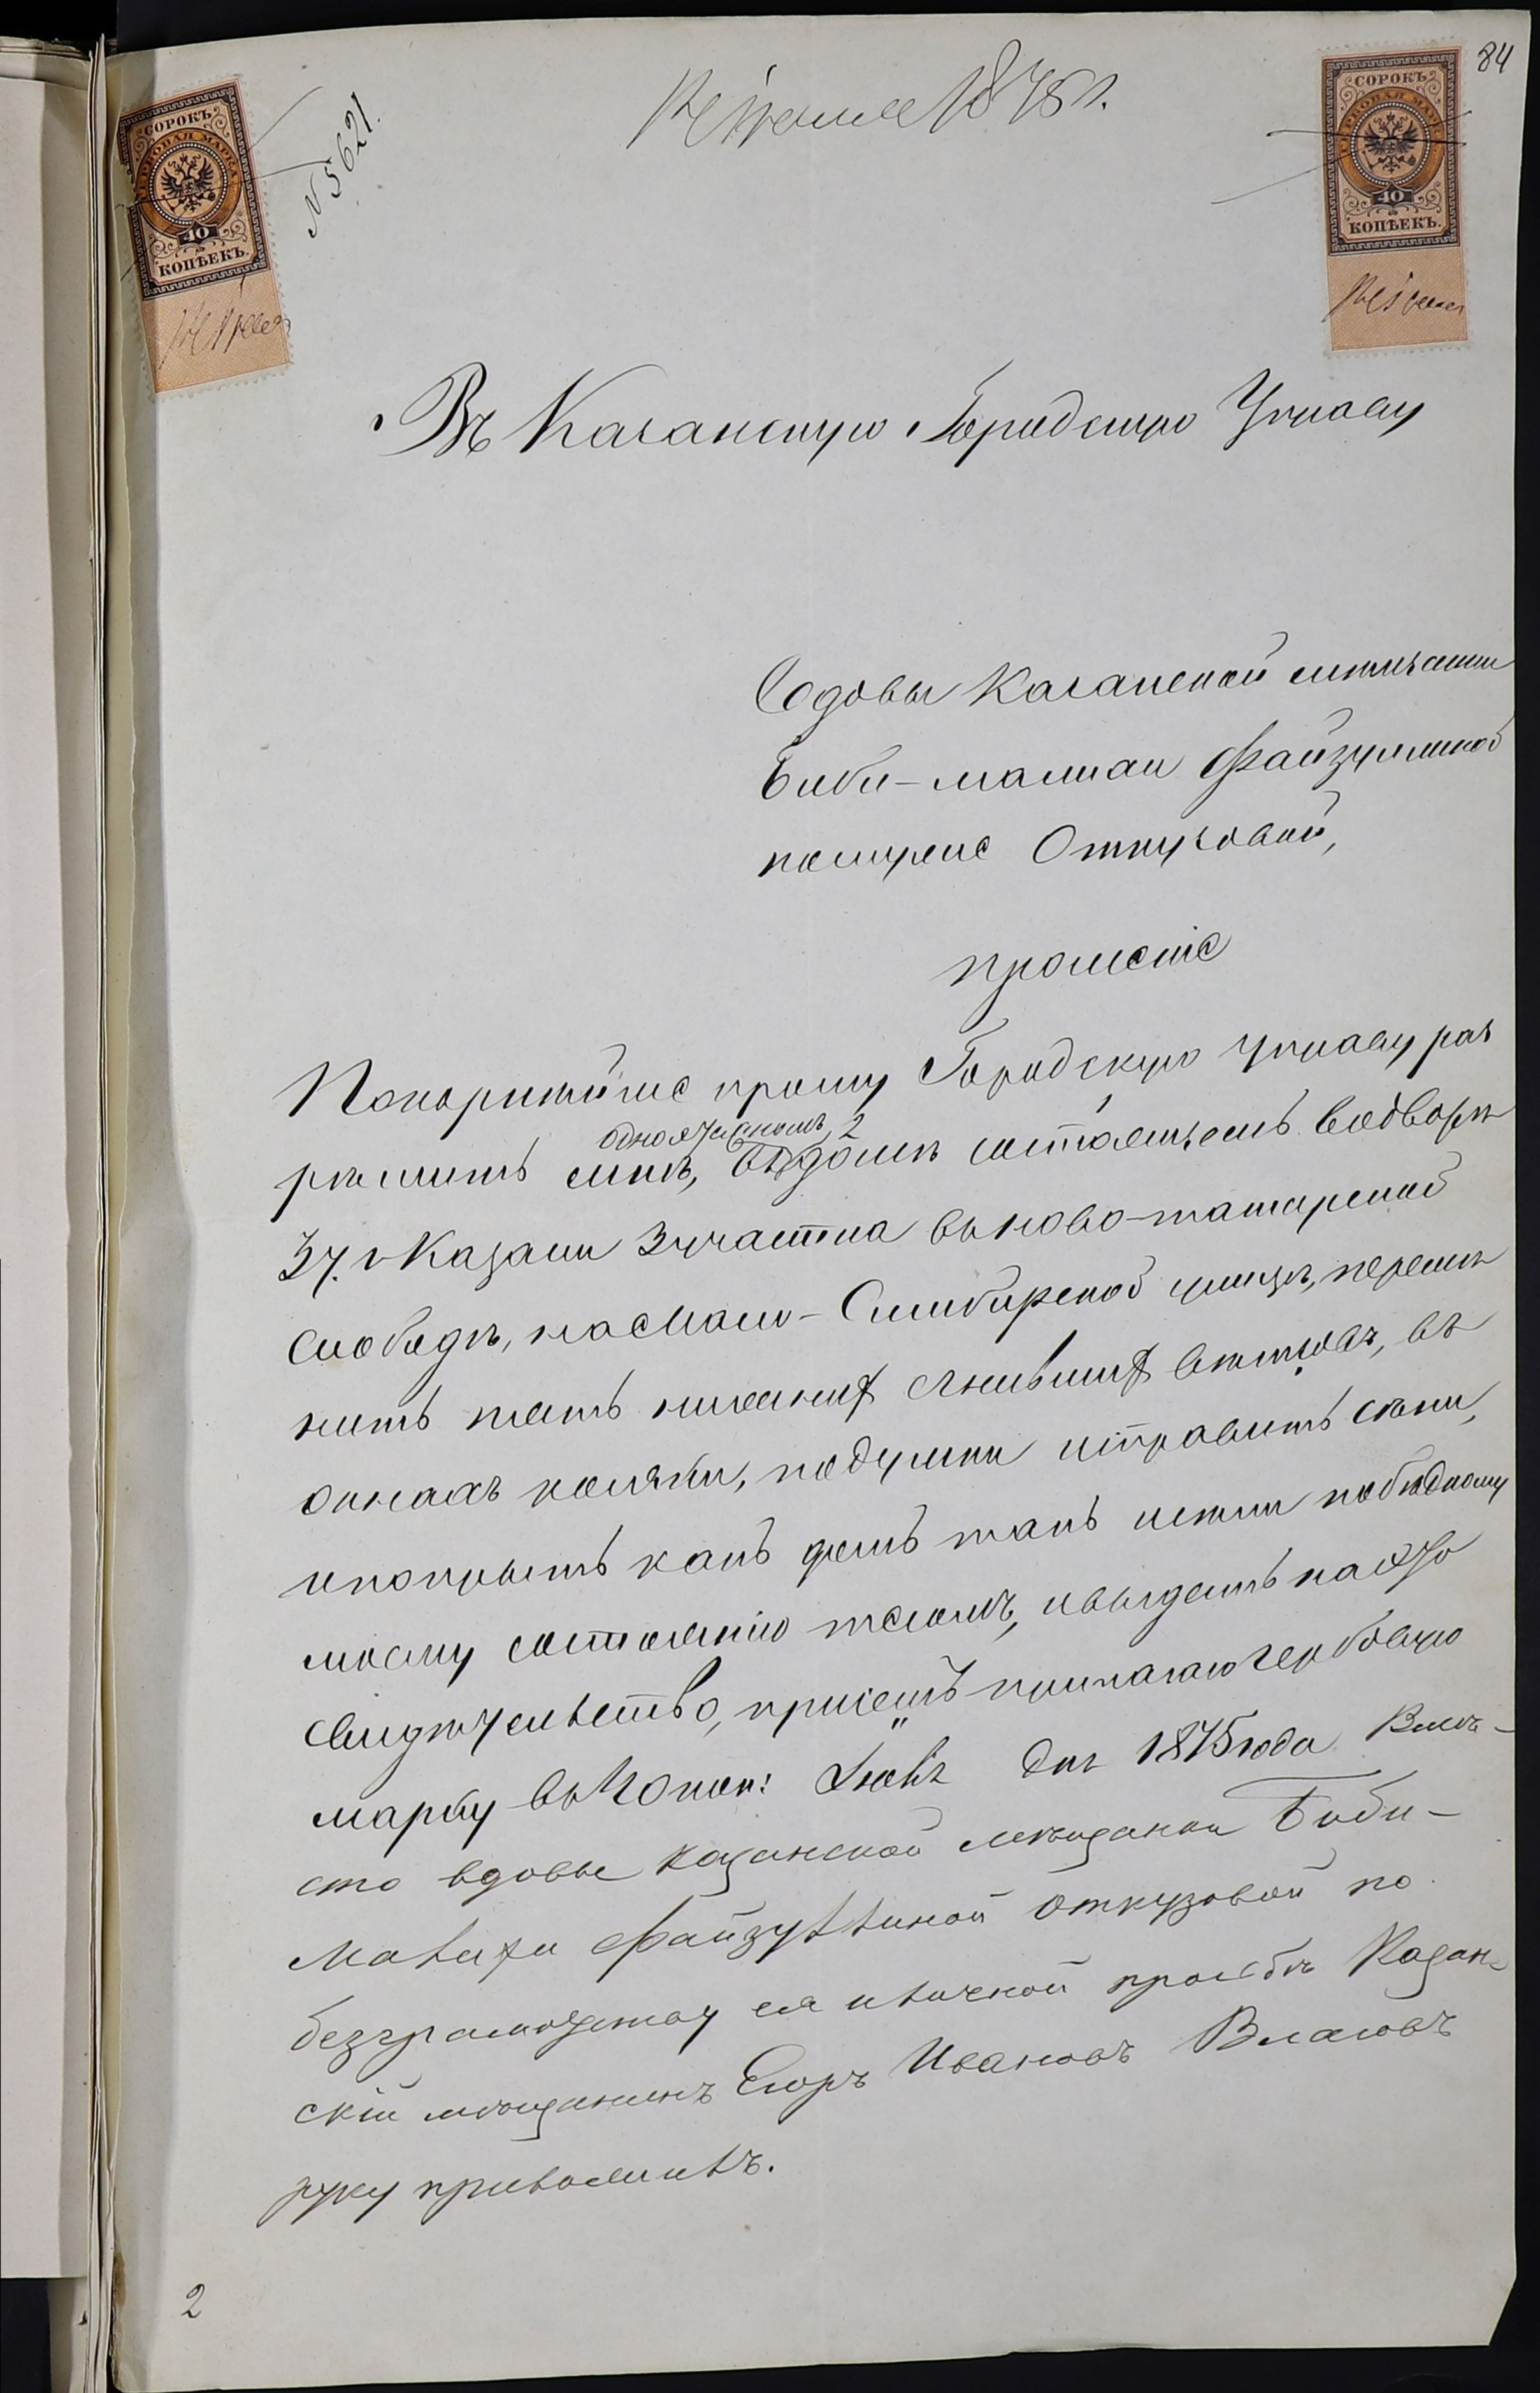 84
12 іюня 1875 г.
N 5621.
СОРОКЪ
ГЕРБОВАЯ МАРКА
40
КОПѢЕКЪ.
12 іюня
СОРОКЪ
ГЕРБОВАЯ МАРКА
40
КОПѢЕКЪ.
12 іюня
Въ Казанскую Городскую Управу
Вдовы Казанской мѣщанки
Биби-малики Файзуллиной
Откузовой,
прошеніе
Покорнѣйше прошу Городскую управу раз
рѣшить мнѣ, въ одноэтажномъ домѣ состоящемъ во дворѣ
3 ч. г. Казани 3 участка въ ново-татарской
слободѣ, на Мало-Симбирской улицѣ, перемѣ
нить пять нижнихъ сгнившихъ вѣнцовъ, въ
окнахъ косяки, подушки исправить
и покрыть какъ домъ такъ и по бѣдному
моему состоянію тесомъ, и выдать на это
свидѣтельство, при семъ прилагаю гербовую
марку въ 40 коп: Іюня " дня 1875 года Вмѣ-
сто вдовы казанской мѣщанки Биби-
Малики Файзуллиной Откузовой по
безграмотству ея и личной просьбѣ Казан-
скій мѣщанинъ Егоръ Ивановъ Власовъ
руку приложилъ.
2